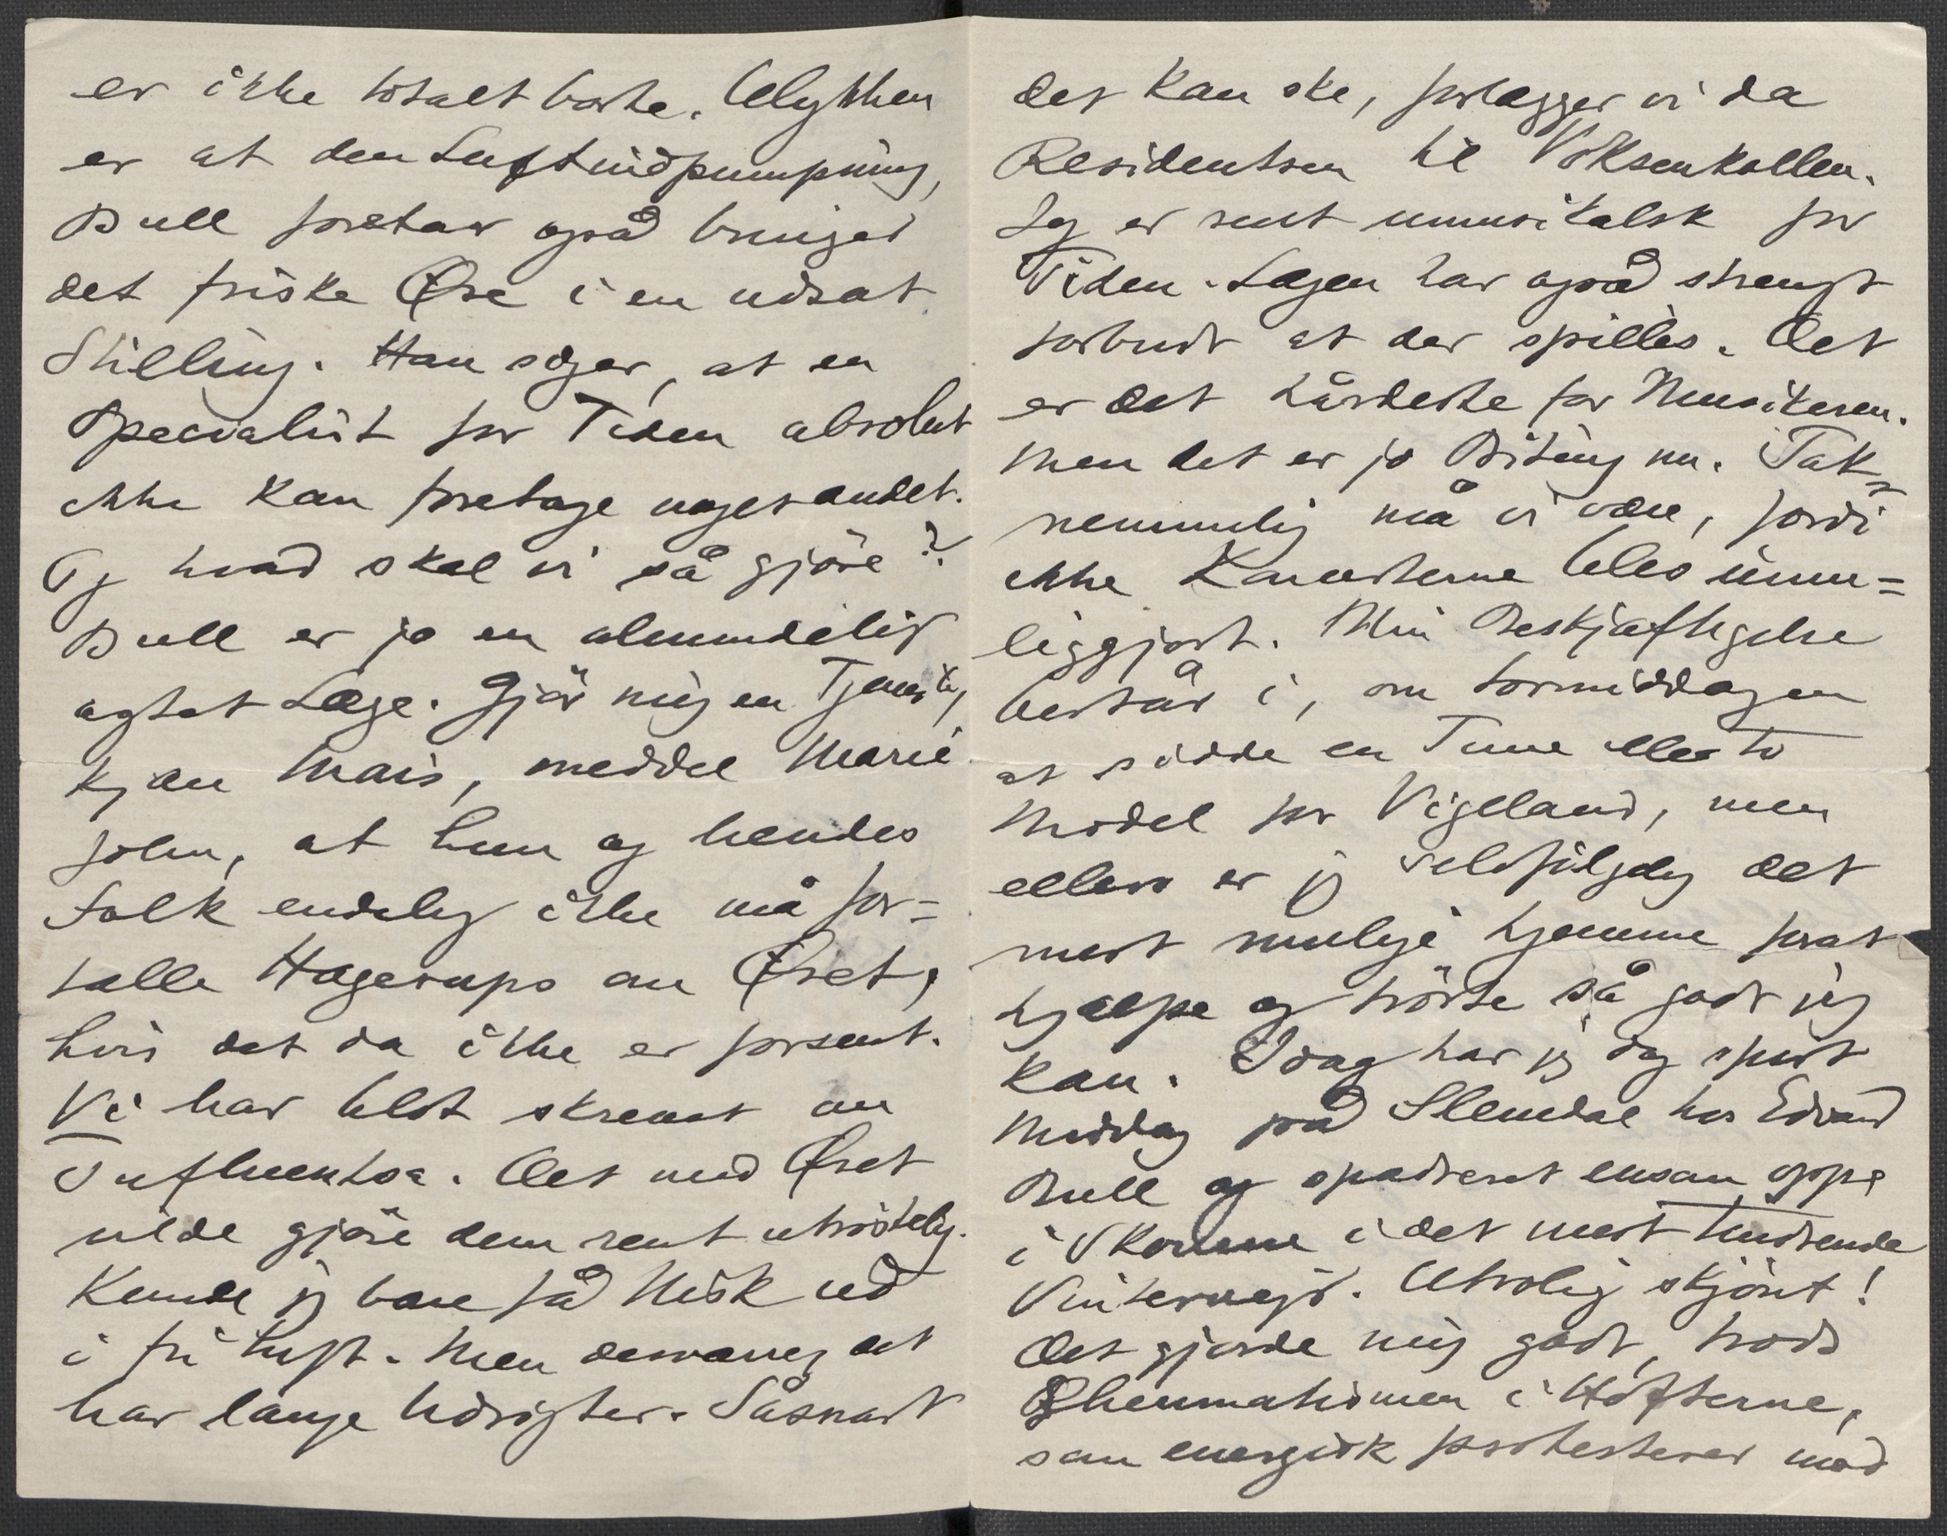 er ikke totalt borte. Ulykken
er at den Luftindpumpning,
Bull foretar også bringer
det friske Øre i en udsat
Stilling. Han siger, at en
Specialist for Tiden absolut
ikke kan foretage noget andet.
Og hvad skal vi så gjöre?
Bull er jo en almindelig
agtet Læge. Gjör mig en Tjeneste,
kjære Mais, meddel Marie
John, at hun og hendes
Folk endelig ikke må for=
talle Hagerups om Øret,
hvis det da ikke er forsent.
Vi har blot skrevet om
Influentsa. Det med Øret
vilde gjöre dem rent utröstelig.
Kunde jeg bare få Misk ud
i fri Luft. Men desværre det
har lange Udsigter. Såsnart
det kan ske, forlægger vi da
Residentsen til Voksenkollen.
Jeg er rent umusikalsk for
Tiden. Lægen har også strengt
forbudt at der spilles. Det
er det hårdeste for Musikeren.
Men det er jo Biting nu. Tak=
nemmelig må vi være, fordi
ikke Koncerterne blev umu=
liggjort. Min Beskjæftigelse
består i, om Formiddagen
at sidde en Time eller to
Model for Vigeland, men
ellers er jeg selvfölgelig det
mest mulige hjemme forat
hjælpe og tröste så godt jeg
kan. Idag har jeg dog spist
Middag på Slemdal hos Edvard
Bull og spadseret ensom oppe
i Skovene i det mest tindrende
Vintervejr. Utrolig skjönt!
Det gjorde mig godt, trods
Rheumatismen i Hofterne,
som energisk protesterer mod